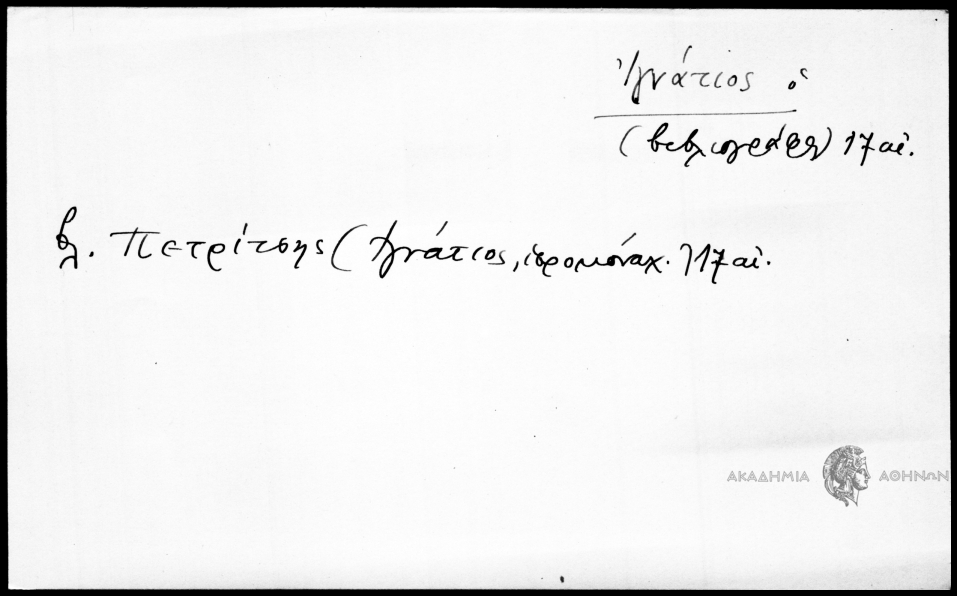 Ἰγνάτιος ὁ
(βιβλιογράφος) 17 αἰ.
βλ. Πετρίτσης (Ἰγνάτιος, ἱερομόναχ.) 17 αἰ.
ΑΚΑΔΗΜΙΑ ΑΘΗΝΩΝ